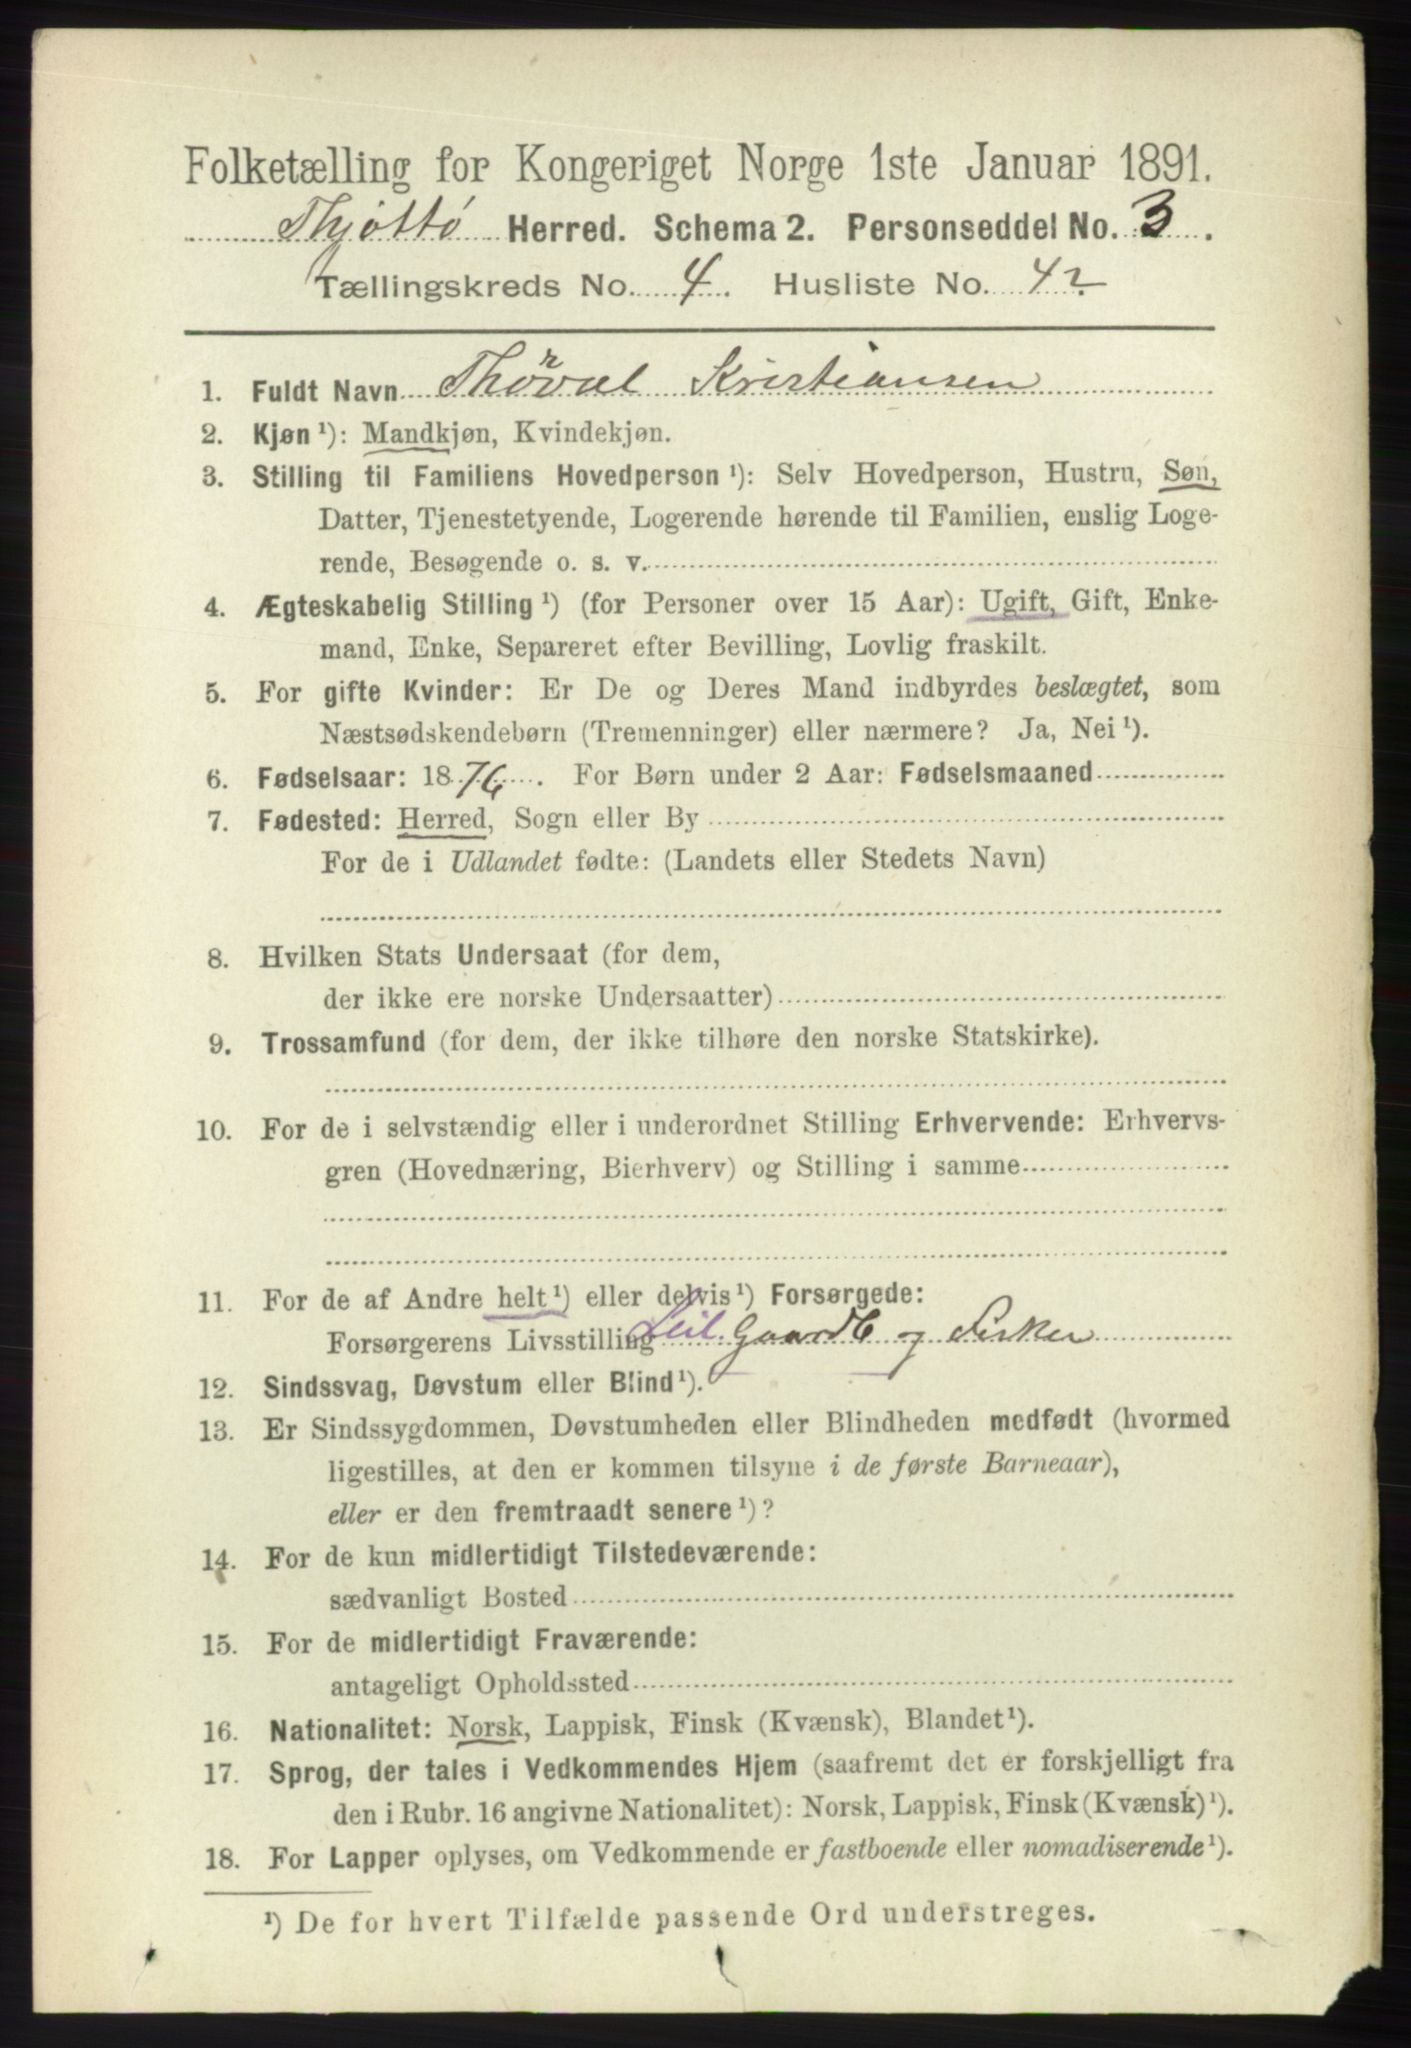 Folketælling for Kongeriget Norge 1ste Januar 1891.
Thjøttø Herred. Schema 2. Personseddel No. 3.
Tællingskreds No. 4. Husliste No. 42
1. Fuldt Navn Thorval Kristiansen
2. Kjøn ¹): Mandkjøn, Kvindekjøn.
3. Stilling til Familiens Hovedperson ¹): Selv Hovedperson, Hustru, Søn,
Datter, Tjenestetyende, Logerende hørende til Familien, enslig Loge-
rende, Besøgende o. s. v.
4. Ægteskabelig Stilling ¹) (for Personer over 15 Aar): Ugift, Gift, Enke-
mand, Enke, Separeret efter Bevilling, Lovlig fraskilt.
5. For gifte Kvinder: Er De og Deres Mand indbyrdes beslægtet, som
Næstsødskendebørn (Tremenninger) eller nærmere? Ja, Nei ¹).
6. Fødselsaar: 1876. For Børn under 2 Aar: Fødselsmaaned
7. Fødested: Herred, Sogn eller By
For de i Udlandet fødte: (Landets eller Stedets Navn)
8. Hvilken Stats Undersaat (for dem,
der ikke ere norske Undersaatter)
9. Trossamfund (for dem, der ikke tilhøre den norske Statskirke).
10. For de i selvstændig eller i underordnet Stilling Erhvervende: Erhvervs-
gren (Hovednæring, Bierhverv) og Stilling i samme
11. For de af Andre helt ¹) eller delvis ¹) Forsørgede:
Forsørgerens Livsstilling Leil. Gaardb og Fisker
12. Sindssvag, Døvstum eller Blind ¹).
13. Er Sindssygdommen, Døvstumheden eller Blindheden medfødt (hvormed
ligestilles, at den er kommen tilsyne i de første Barneaar),
eller er den fremtraadt senere ¹)?
14. For de kun midlertidigt Tilstedeværende:
sædvanligt Bosted
15. For de midlertidigt Fraværende:
antageligt Opholdssted
16. Nationalitet: Norsk, Lappisk, Finsk (Kvænsk), Blandet ¹).
17. Sprog, der tales i Vedkommendes Hjem (saafremt det er forskjelligt fra
den i Rubr. 16 angivne Nationalitet): Norsk, Lappisk, Finsk (Kvænsk) ¹).
18. For Lapper oplyses, om Vedkommende er fastboende eller nomadiserende ¹).
¹) De for hvert Tilfælde passende Ord understreges.